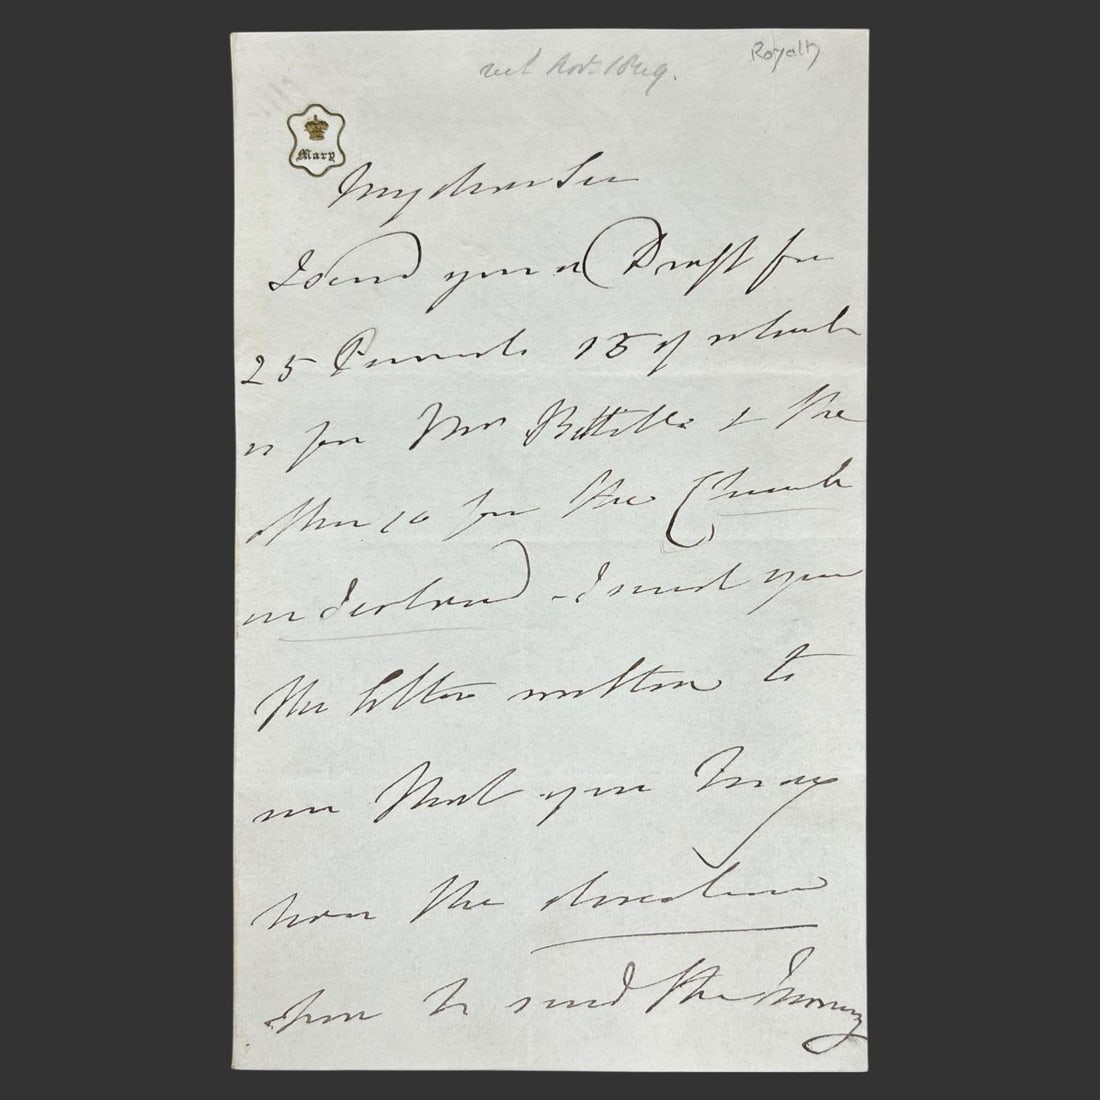 Royalty
Mary
My dear Sir
I send you a Draft for
25 Pounds 15 of which
is for Mrs & the
other 10 for the Church
in Ireland - I send you
the letter written to
me that you may
have the direction
how to send the Money